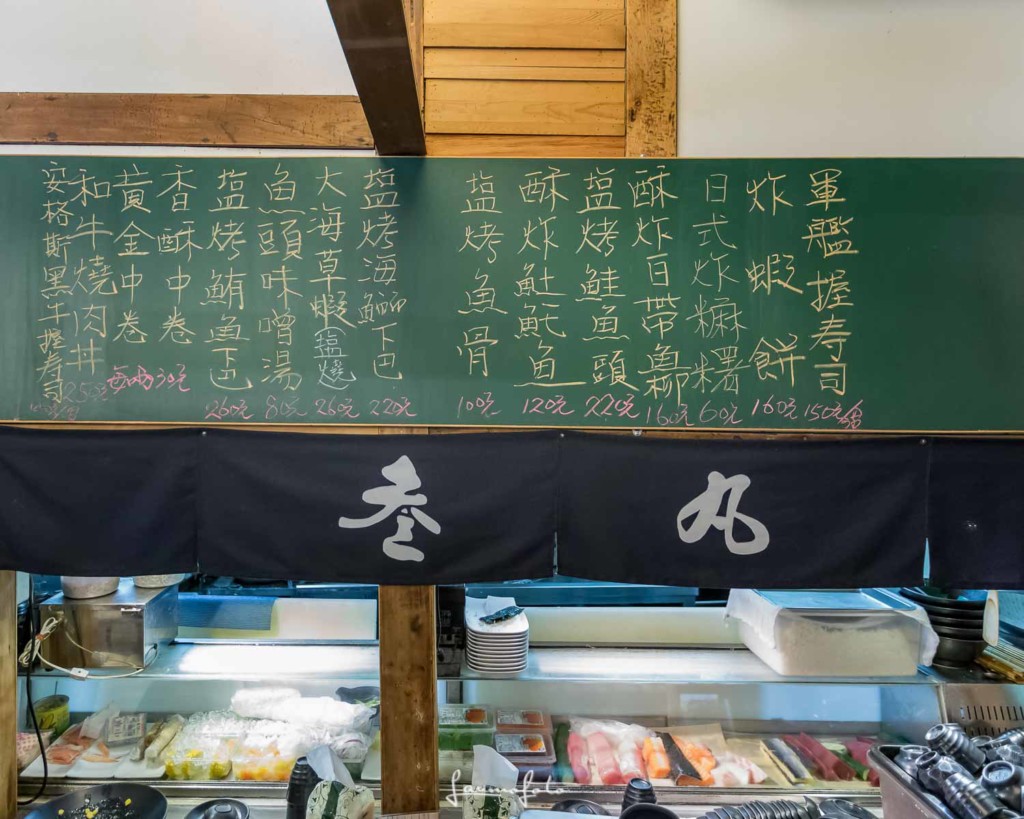 軍艦握寿司 150元
炸蝦餅 160元
日式炸糯糬 60元
酥炸白帶魚柳 160元
塩烤鮭魚頭 220元
酥炸魠魚 120元
塩烤魚骨 100元
塩烤海鱺下巴 220元
大海草蝦塩燒 260元
魚頭味噌湯 80元
塩烤鮪魚下巴 260元
香酥中卷
黃金中卷
和牛燒肉丼
安格斯黑牛握寿司
丸